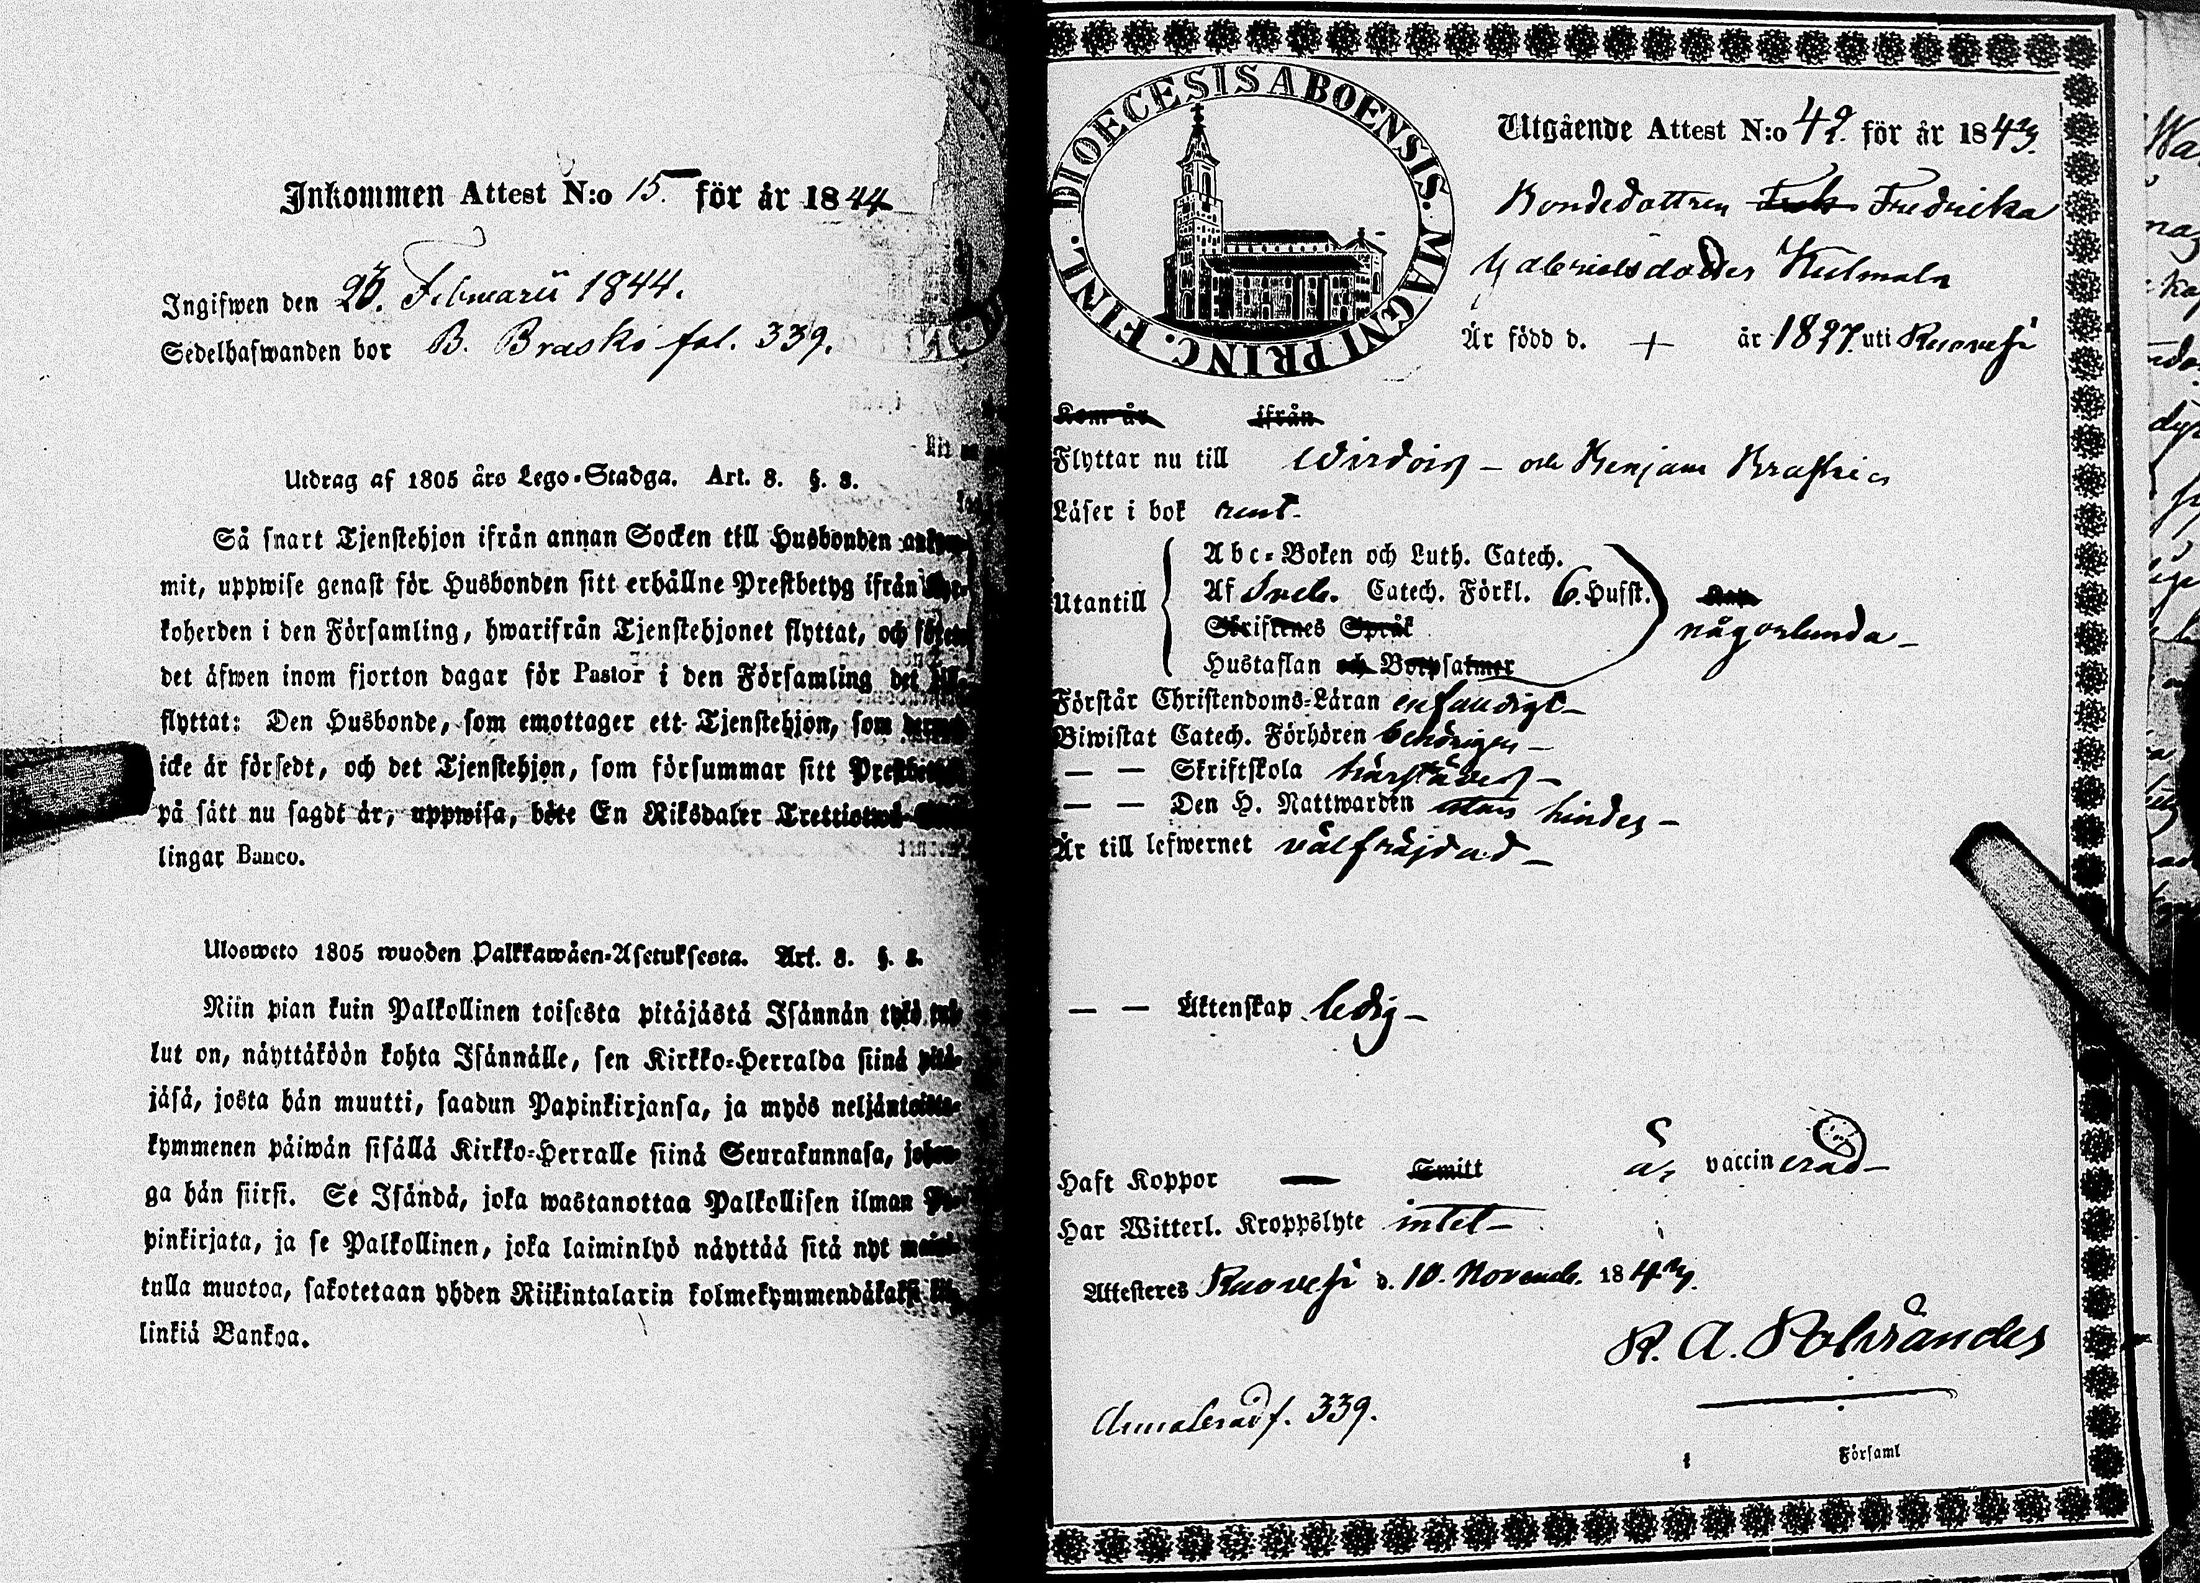 Inkommen Attest N:o 15. för år 1844
Ingifwen den 26. Februarii 1844.
Sedelhafwanden bor B. Braski fol. 339.
Utdrag af 1805 års Lego-Stadga. Art. 8. §. 8.
Så snart Tjenstehjon ifrån annan Socken till Husbonden ankom-
mit, uppwise genast för Husbonden sitt erhållne Prestbetyg ifrån Kyr-
koherden i den Församling, hwarifrån Tjenstehjonet flyttat, och förete
det äfwen inom fjorton dagar för Pastor i den Församling det
flyttat: Den Husbonde, som emottager ett Tjenstehjon, som
icke är försedt, och det Tjenstehjon, som försummar sitt Prestbetyg
på sätt nu sagdt är, uppwisa, böte En Riksdaler Trettiotwå
lingar Banco.
Ulosweto 1805 wuoden Palkkawäen-Asetuksesta. Art. 8. §. 8.
Niin pian kuin Palkollinen toisesta pitäjästä Isännän tykö tul-
lut on, näyttäköön kohta Isännälle, sen Kirkko-Herralda siinä pitä-
jäsä, josta hän muutti, saadun Papinkirjansa, ja myös neljäntoista-
kymmenen päiwän sisällä Kirkko-Herralle siinä Seurakunnasa, johon-
ga hän siirsi. Se Isändä, joka wastanottaa Palkollisen ilman Pa-
pinkirjata, ja se Palkollinen, joka laiminlyö näyttää sitä nyt maini-
tulla muotoa, sakotetaan yhden Riikintalarin kolmekymmendäkaksi kil-
linkiä Bankoa.
DIOECESIS ABOENSIS. MAGNI PRINC. FINL.
Utgående Attest N:o 42. för år 1843.
Bondedottren Fredrika
Gabrielsdotter Kulmala
Är född d. + år 1827. uti Ruovesi
Kom år ifrån
Flyttar nu till Wirdois – och Benjam Braskis
Läser i bok rent –
Utantill
Abc-Boken och Luth. Catech.
Af Sveb. Catech. Förkl. 6. Hufst.
Skriftenes Språk
Hustaflan och Botpsalmer
någorlunda –
Förstår Christendoms-Läran enfaldigt –
Biwistat Catech. Förhören behörigen –
— — Skriftskola härstädes –
— — Den H. Nattwarden hindes –
Är till lefwernet välfräjdad –
— — Äktenskap ledig –
Haft Koppor — Smitt är vaccinerad –
Har Witterl. Kroppslyte intet –
Attesteres Ruovesi d. 10. Novemb. 1843.
Annoterad f. 339.
Församl